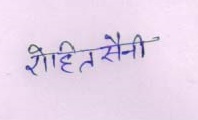 रोहित सैनी